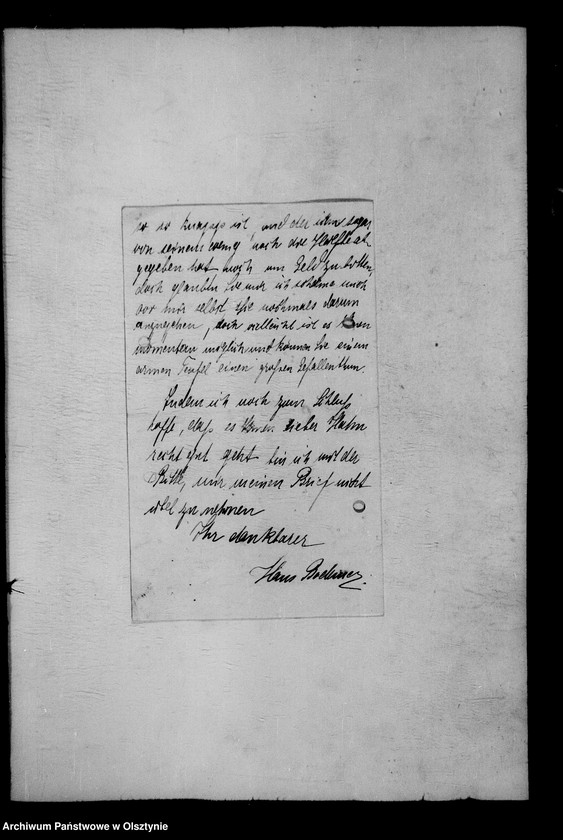 er so knapp ist, und der
von seinem wenig noch die Hälfte ab-
gegeben hat noch um Geld zu bitten,
doch glauben Sie mir ich schäme mich
vor mir selbst Sie nochmals darum
anzugehen, doch vielleicht ist es Ihnen
momentan möglich und können Sie einem
armen Teufel einen großen Gefallen thun.
Indem ich noch zum Schluß
hoffe, daß es Ihnen lieber Hahn
recht gut geht bin ich mit der
Bitte, mir meinen Brief nicht
übel zu nehmen
Ihr dankbarer
Hans
Archiwum Państwowe w Olsztynie